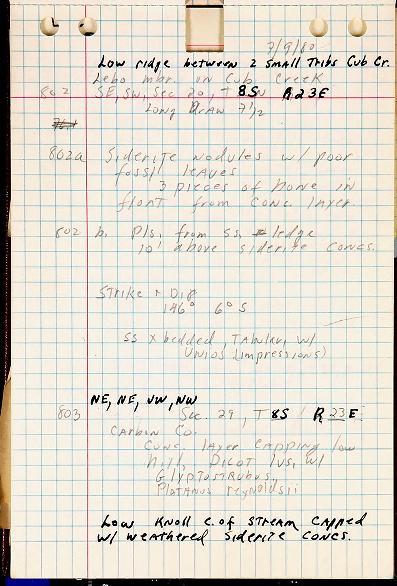 7/9/80
Low ridge between 2 small Tribs Cub Cr.
Lebo mbr. on Cub Creek
802 SE, SW, Sec 20, T 8S R23E
Long Draw 7 1/2
802a Siderite nodules w/ poor
fossil leaves
3 pieces of bone in
float from conc layer.
802 b. Pls. from ss. ledge
10' above siderite concs.
Strike + Dip
146° 6° S
ss x bedded, Tabular, w/
unios (impressions)
NE, NE, NW, NW
803 Sec. 29, T 8S / R 23 E.
Carbon Co.
Conc. layer capping low
hill, Dicot lvs, w/
Glyptostrobus,
Platanus reynoldsii
Low Knoll E. of stream capped
w/ weathered siderite concs.